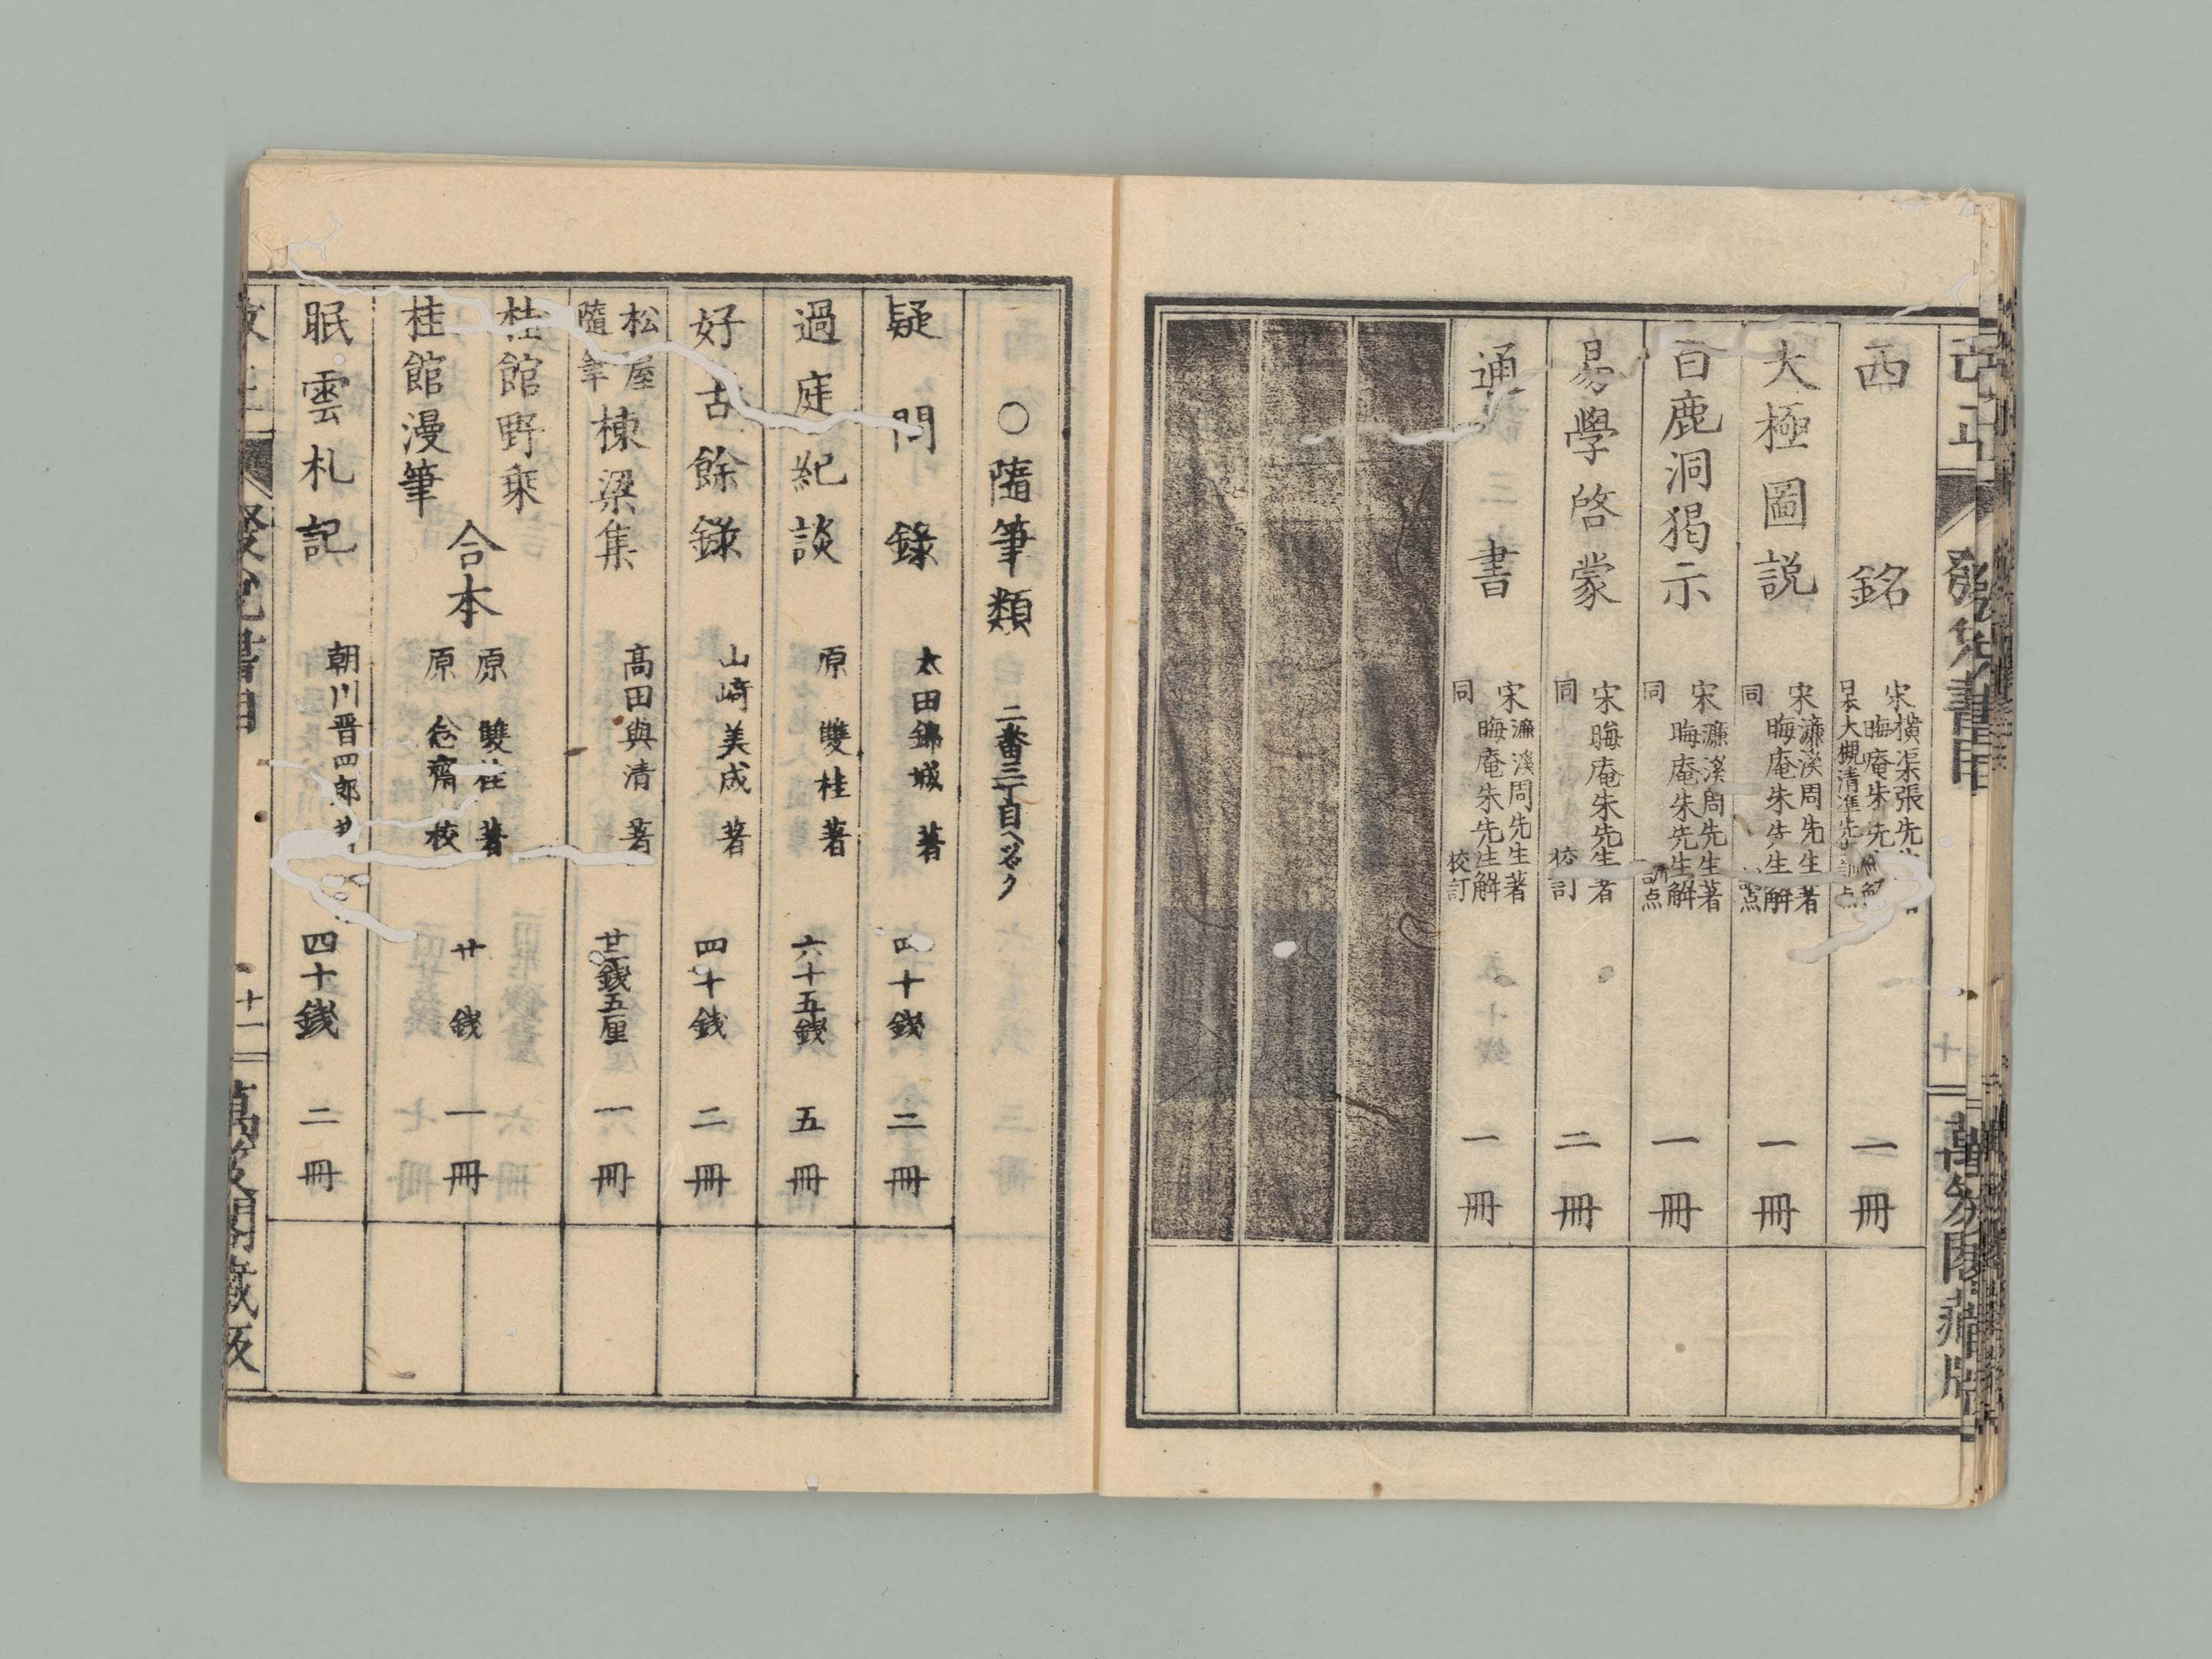 西銘 宋横渠張先生著 晦庵朱先生解 日本大槻清準先生訓点 一冊
大極圖説 宋濂溪周先生著 晦庵朱先生解 同 訓点 一冊
白鹿洞掲示 宋濂溪周先生著 晦庵朱先生解 同 訓点 一冊
易學啓蒙 宋晦庵朱先生著 同 校訂 二冊
通書 宋濂溪周先生著 晦庵朱先生解 同 校訂 一冊
十
萬笈閣蔵版
〇隨筆類 二番三丁目ヘツヾク
疑問録 太田錦城著 四十錢 二冊
過庭紀談 原雙桂著 六十五錢 五冊
好古餘録 山崎美成著 四十錢 二冊
松屋隨筆 棟梁集 髙田與清著 廿二錢五厘 一冊
桂館野乗
桂館漫筆
合本 原雙桂著 原念齋校 廿錢 一冊
眠雲札記 朝川晋四郎著 四十錢 二冊
改正 發兌書目
十一
萬笈閣蔵版